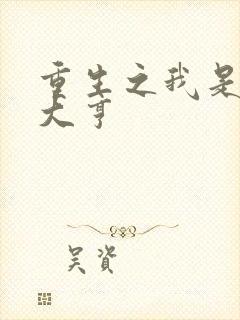 重生之我是
大亨
吴资